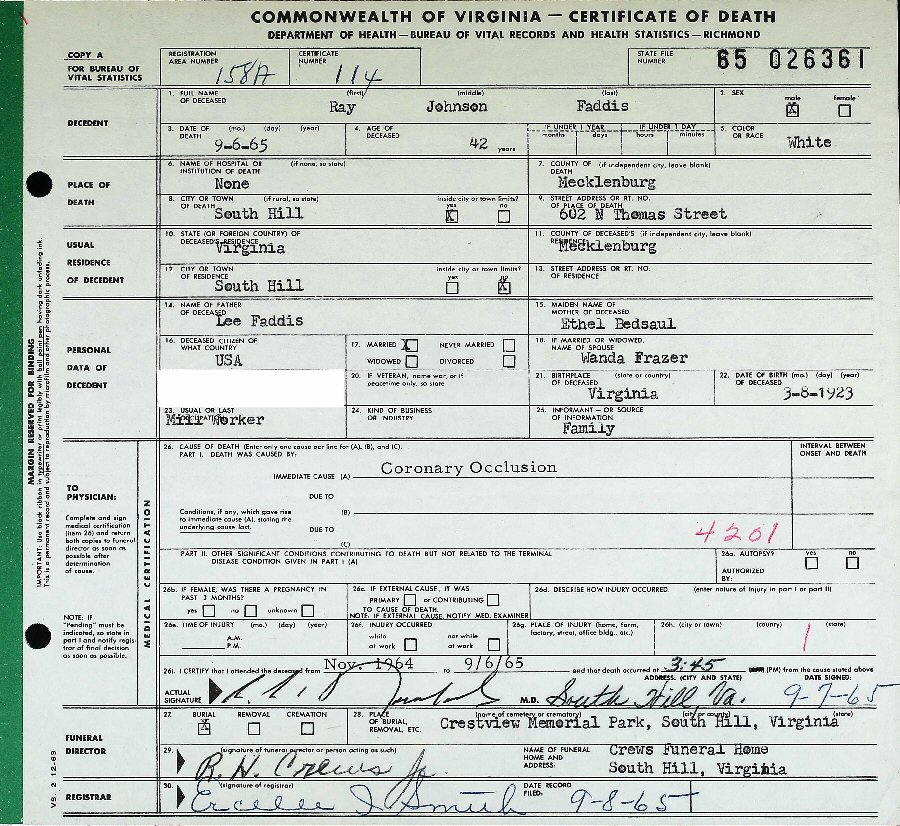 COMMONWEALTH OF VIRGINIA — CERTIFICATE OF DEATH
DEPARTMENT OF HEALTH—BUREAU OF VITAL RECORDS AND HEALTH STATISTICS—RICHMOND
COPY A
FOR BUREAU OF
VITAL STATISTICS
REGISTRATION AREA NUMBER 158A
CERTIFICATE NUMBER 114
STATE FILE NUMBER 65 026361
DECEDENT
1. FULL NAME OF DECEASED (first) (middle) (last)
Ray Johnson Faddis
2. SEX male female
X
3. DATE OF DEATH (mo.) (day) (year)
9-6-65
4. AGE OF DECEASED
42 years
IF UNDER 1 YEAR months days
IF UNDER 1 DAY hours minutes
5. COLOR OR RACE
White
PLACE OF
DEATH
6. NAME OF HOSPITAL OR INSTITUTION OF DEATH (if none, so state)
None
7. COUNTY OF DEATH (if independent city, leave blank)
Mecklenburg
8. CITY OR TOWN OF DEATH (if rural, so state)
South Hill
inside city or town limits? yes no
X
9. STREET ADDRESS OR RT. NO. OF PLACE OF DEATH
602 N Thomas Street
USUAL
RESIDENCE
OF DECEDENT
10. STATE (OR FOREIGN COUNTRY) OF DECEASED'S RESIDENCE
Virginia
11. COUNTY OF DECEASED'S RESIDENCE (if independent city, leave blank)
Mecklenburg
12. CITY OR TOWN OF RESIDENCE
South Hill
inside city or town limits? yes no
X
13. STREET ADDRESS OR RT. NO. OF RESIDENCE
PERSONAL
DATA OF
DECEDENT
14. NAME OF FATHER OF DECEASED
Lee Faddis
15. MAIDEN NAME OF MOTHER OF DECEASED
Ethel Bedsaul
16. DECEASED CITIZEN OF WHAT COUNTRY
USA
17. MARRIED X NEVER MARRIED
WIDOWED DIVORCED
18. IF MARRIED OR WIDOWED, NAME OF SPOUSE
Wanda Frazer
20. IF VETERAN, name war, or if peacetime only, so state
21. BIRTHPLACE OF DECEASED (state or country)
Virginia
22. DATE OF BIRTH OF DECEASED (mo.) (day) (year)
3-8-1923
23. USUAL OR LAST OCCUPATION
Mill Worker
24. KIND OF BUSINESS OR INDUSTRY
25. INFORMANT — OR SOURCE OF INFORMATION
Family
MARGIN RESERVED FOR BINDING
IMPORTANT: Use black ribbon in typewriter or print legibly with ball point pen having dark unfading ink.
This is a permanent record and subject to reproduction by microfilm and other photographic process.
TO
PHYSICIAN:
Complete and sign
medical certification
(item 26) and return
both copies to funeral
director as soon as
possible after
determination
of cause.
NOTE: IF
"Pending" must be
indicated, so state in
part I and notify regis-
trar of final decision
as soon as possible.
MEDICAL CERTIFICATION
26. CAUSE OF DEATH (Enter only one cause per line for (A), (B), and (C).
PART I. DEATH WAS CAUSED BY:
INTERVAL BETWEEN ONSET AND DEATH
IMMEDIATE CAUSE (A) Coronary Occlusion
DUE TO
Conditions, if any, which gave rise to immediate cause (A), stating the underlying cause last.
(B)
DUE TO
(C)
4201
PART II. OTHER SIGNIFICANT CONDITIONS CONTRIBUTING TO DEATH BUT NOT RELATED TO THE TERMINAL
DISEASE CONDITION GIVEN IN PART I (A)
26a. AUTOPSY? yes no
AUTHORIZED BY:
26b. IF FEMALE, WAS THERE A PREGNANCY IN PAST 3 MONTHS?
yes no unknown
26c. IF EXTERNAL CAUSE, IT WAS
PRIMARY or CONTRIBUTING
TO CAUSE OF DEATH.
NOTE: IF EXTERNAL CAUSE, NOTIFY MED. EXAMINER
26d. DESCRIBE HOW INJURY OCCURRED (enter nature of injury in part I or part II)
26e. TIME OF INJURY (mo.) (day) (year)
A.M.
P.M.
26f. INJURY OCCURRED
while at work not while at work
26g. PLACE OF INJURY (home, farm, factory, street, office bldg., etc.)
26h. (city or town) (county) (state)
26i. I CERTIFY that I attended the deceased from Nov. 1964 to 9/6/65 and that death occurred at 3:45 (PM) from the cause stated above
ACTUAL SIGNATURE
M.D.
ADDRESS: (CITY AND STATE)
South Hill, Va.
DATE SIGNED:
9-7-65
FUNERAL
DIRECTOR
27. BURIAL REMOVAL CREMATION
X
28. PLACE OF BURIAL, REMOVAL, ETC. (name of cemetery or crematory) (city or county) (state)
Crestview Memorial Park, South Hill, Virginia
29. (signature of funeral director or person acting as such)
R. H. Crews Jr.
NAME OF FUNERAL HOME AND ADDRESS:
Crews Funeral Home
South Hill, Virginia
REGISTRAR
30. (signature of registrar)
Smith
DATE RECORD FILED:
9-8-65
VS. 2 12-63